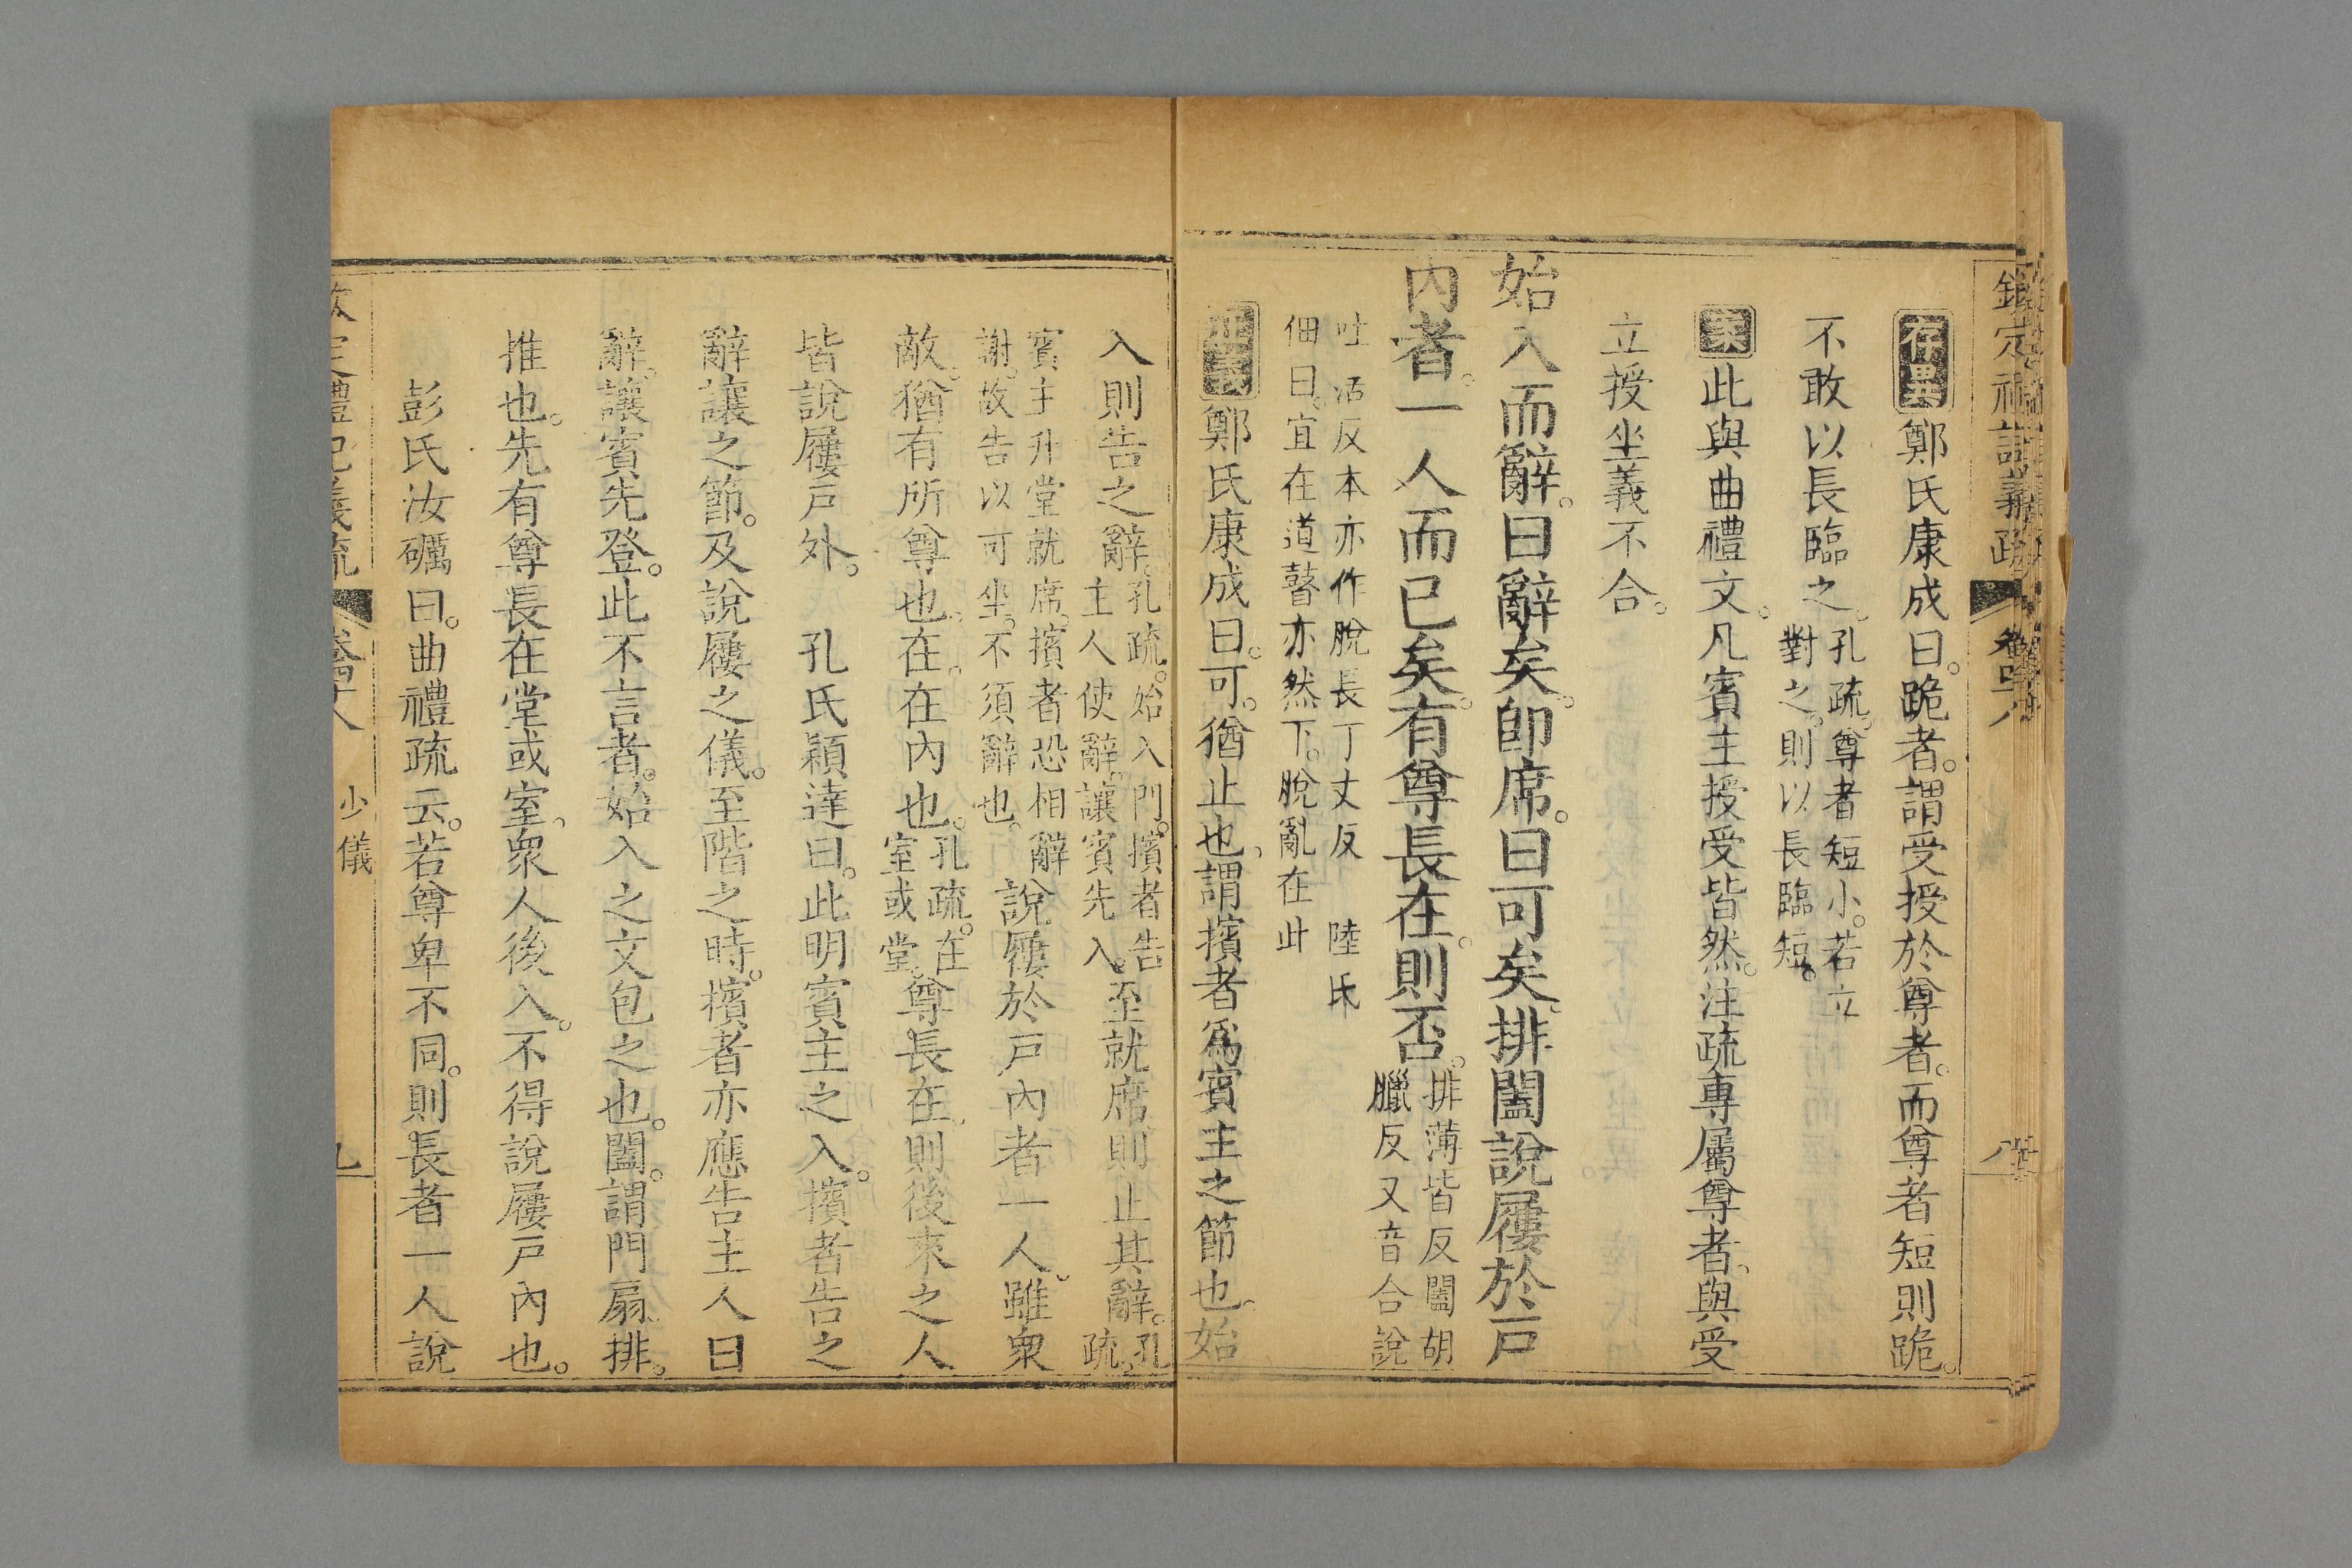 欽定禮記義疏 卷四十八
存異鄭氏康成曰。跪者。謂受授於尊者。而尊者短則跪。
不敢以長臨之。孔疏。尊者短小。若立對之。則以長臨短。
案此與曲禮文。凡賓主授受皆然。注疏專屬尊者。與受
立授坐義不合。
始入而辭。曰辭矣。卽席。曰可矣。排闔說屨於戶
內者。一人而已矣。有尊長在。則否。排薄皆反闔胡臘反又音合說
吐活反本亦作脫長丁丈反 陸氏佃曰。宜在道瞽亦然下。脫亂在此
正義鄭氏康成曰。可。猶止也。謂擯者爲賓主之節也。始
入則告之辭。孔疏。始入門。擯者告主人使辭。讓賓先入。至就席。則止其辭。孔疏。
賓主升堂就席。擯者恐相辭謝。故告以可坐。不須辭也。說屨於戶內者一人。雖衆
敵。猶有所尊也。在。在內也。孔疏。在室或堂。尊長在。則後來之人
皆說屨戶外。 孔氏穎達曰。此明賓主之入。擯者告之
辭讓之節。及說屨之儀。至階之時。擯者亦應告主人曰
辭。讓賓先登。此不言者。始入之文包之也。闔。謂門扇。排。
推也。先有尊長在堂或室。衆人後入。不得說屨戶內也。
彭氏汝礪曰。曲禮疏云。若尊卑不同。則長者一人說
定禮記義疏 卷四十八 少儀 九